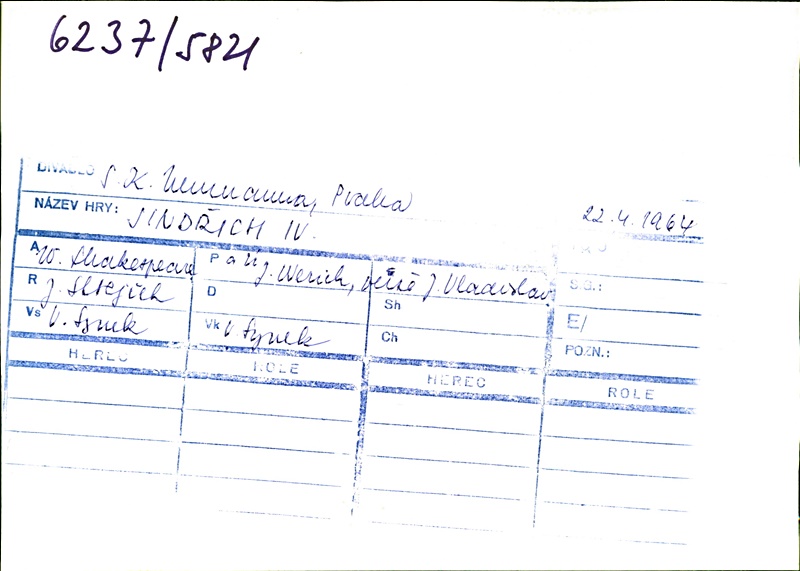 6237/5821
DIVADLO S.K. Neumanna, Praha
NÁZEV HRY: JINDŘICH IV. 22.4.1964
A W. Shakespeare P a ú J. Werich, verše J. Vladislav
R J. Strejček D Sh S.G.:
Vs V. Synek Vk V. Synek Ch E/
POZN.:
HEREC ROLE HEREC ROLE